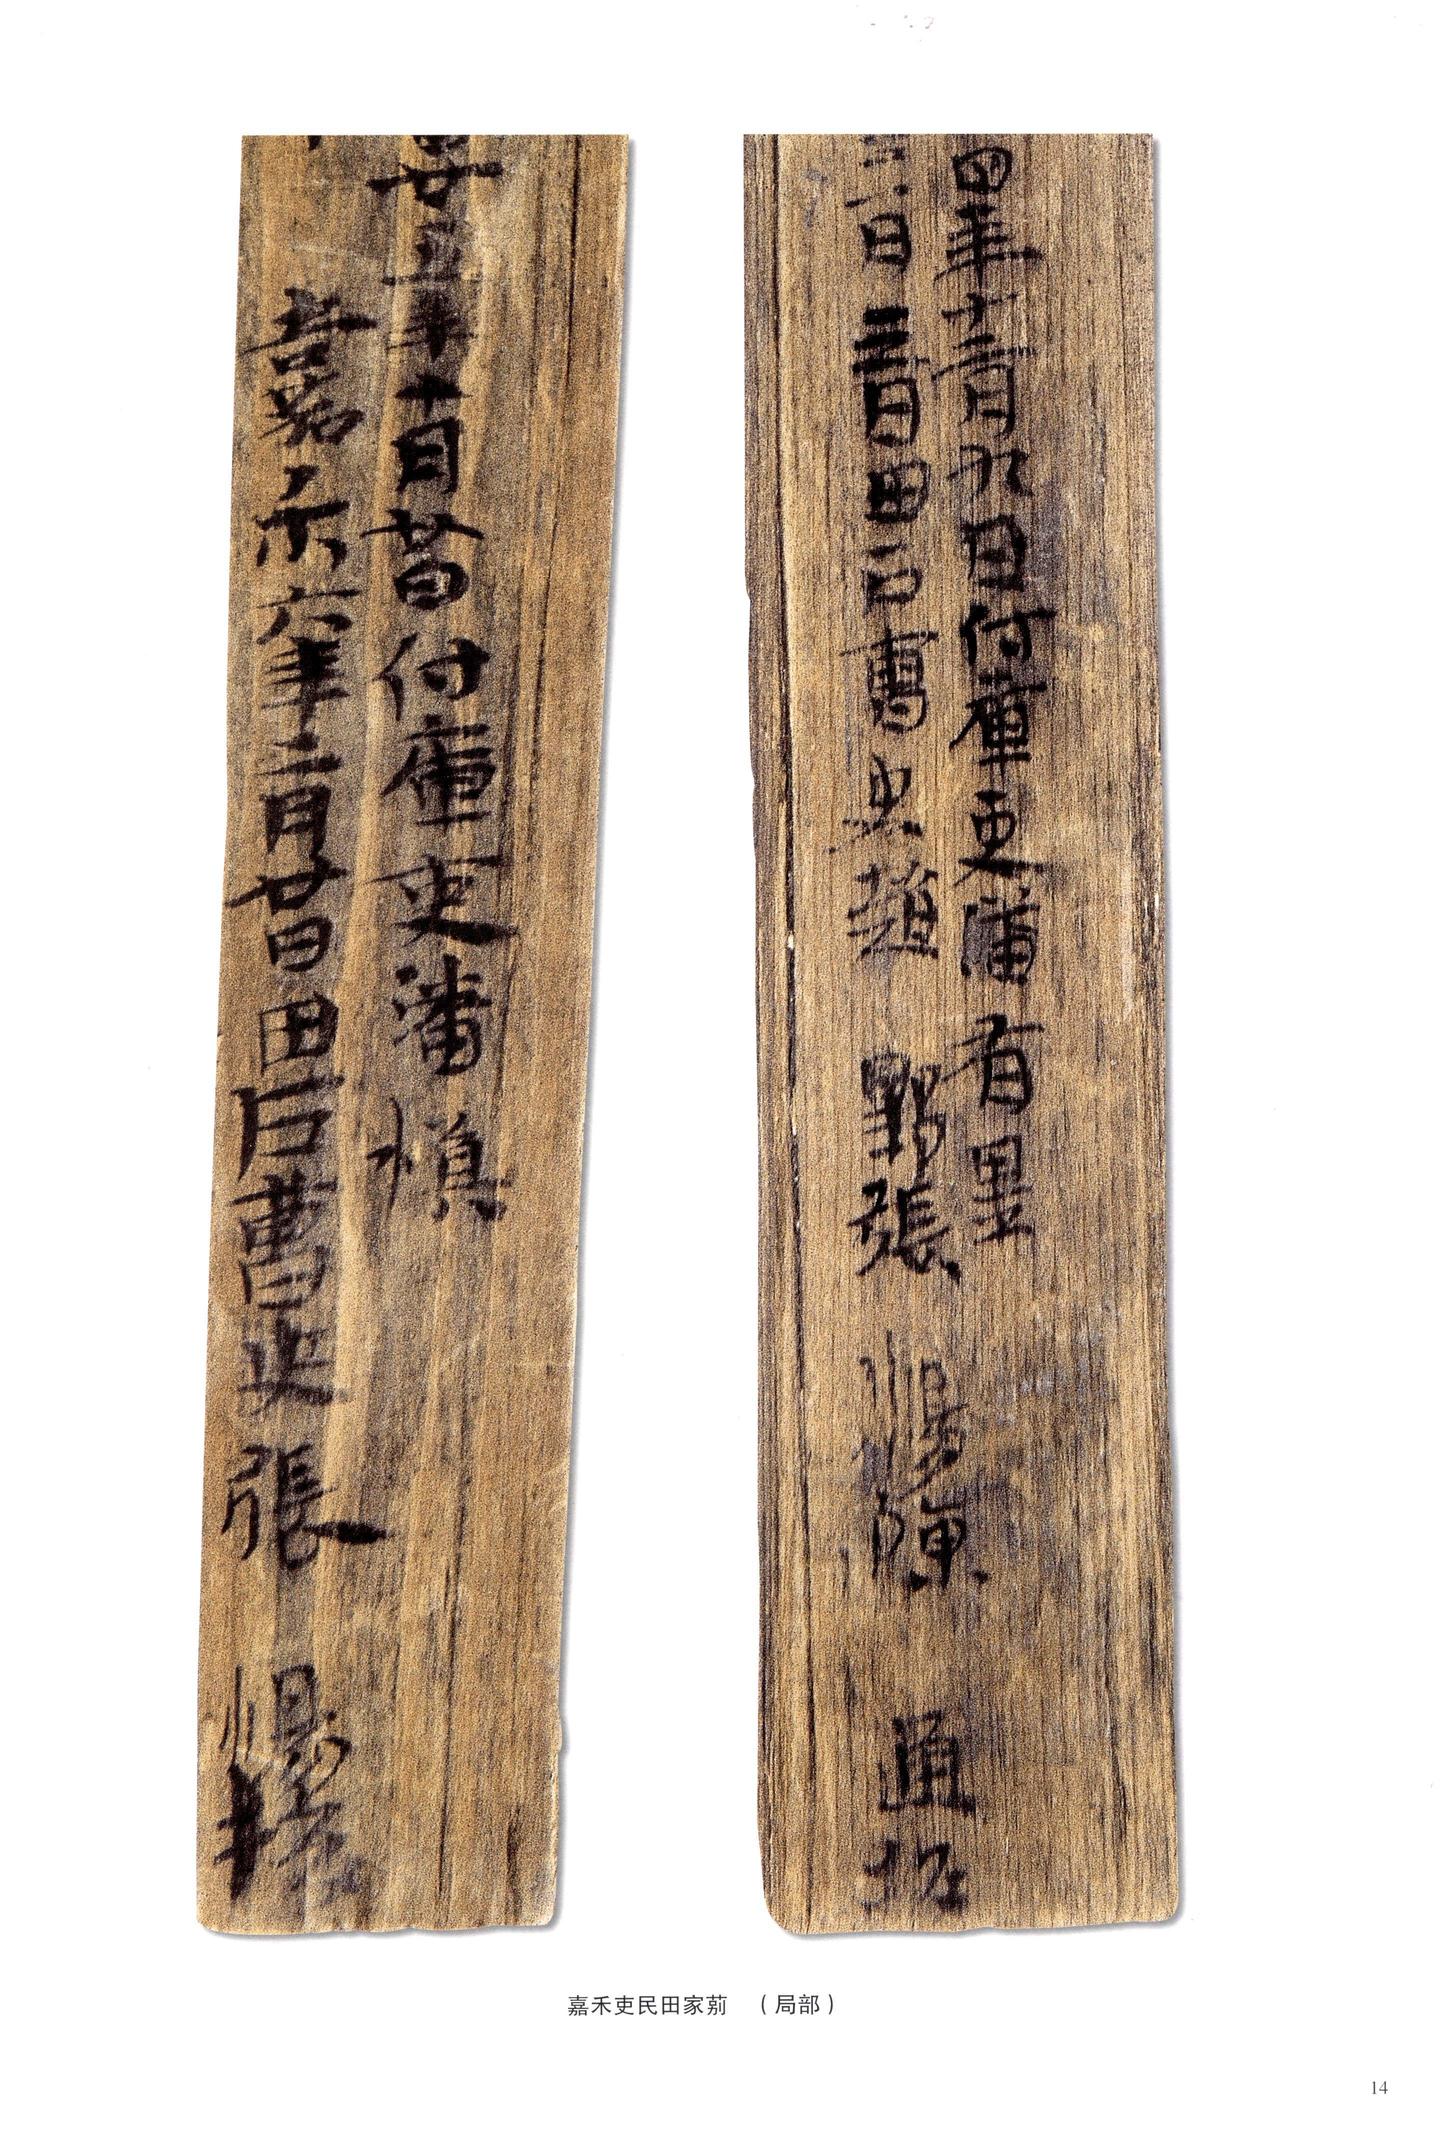 四年十二月九日付庫吏潘有畢
三月三日田戶曹史趙野張惕陳通校
五年十月廿日付庫吏潘慎
嘉禾六年二月廿日田戶曹史張惕校
嘉禾吏民田家莂　（局部）
14